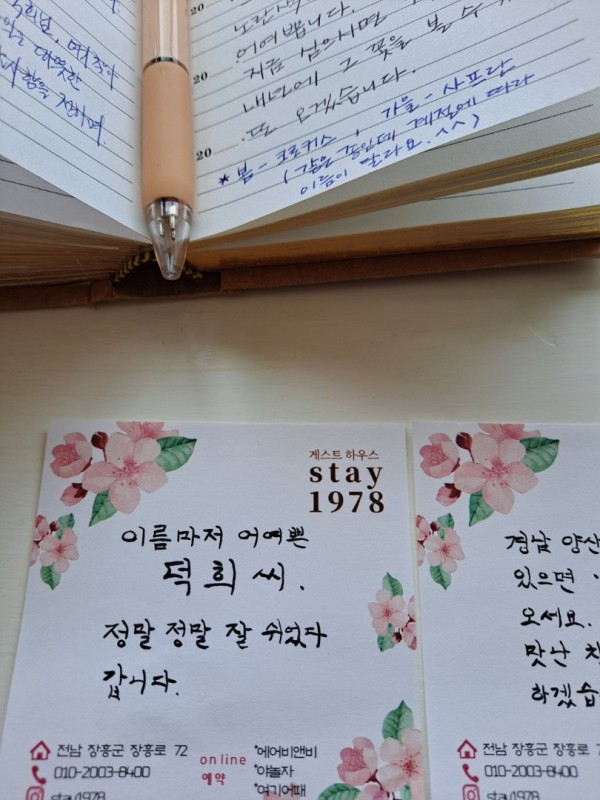 노란색
어여쁩니다.
지금 심으시면
내년에 그 꽃을 볼 수
또 오겠습니다.
*봄 - 크로커스, 가을 - 샤프란
(같은 종인데 계절에 따라
이름이 달라요.^^)
20
20
20
게스트 하우스
stay
1978
이름마저 어여쁜
덕희씨.
정말 정말 잘 쉬었다
갑니다.
전남 장흥군 장흥로 72
010-2003-8400
stay1978
online
예약
*에어비앤비
*야놀자
*여기어때
경남 양산
있으면
오세요.
맛난
하겠습
전남 장흥군 장흥로 7
010-2003-8400
stay1978